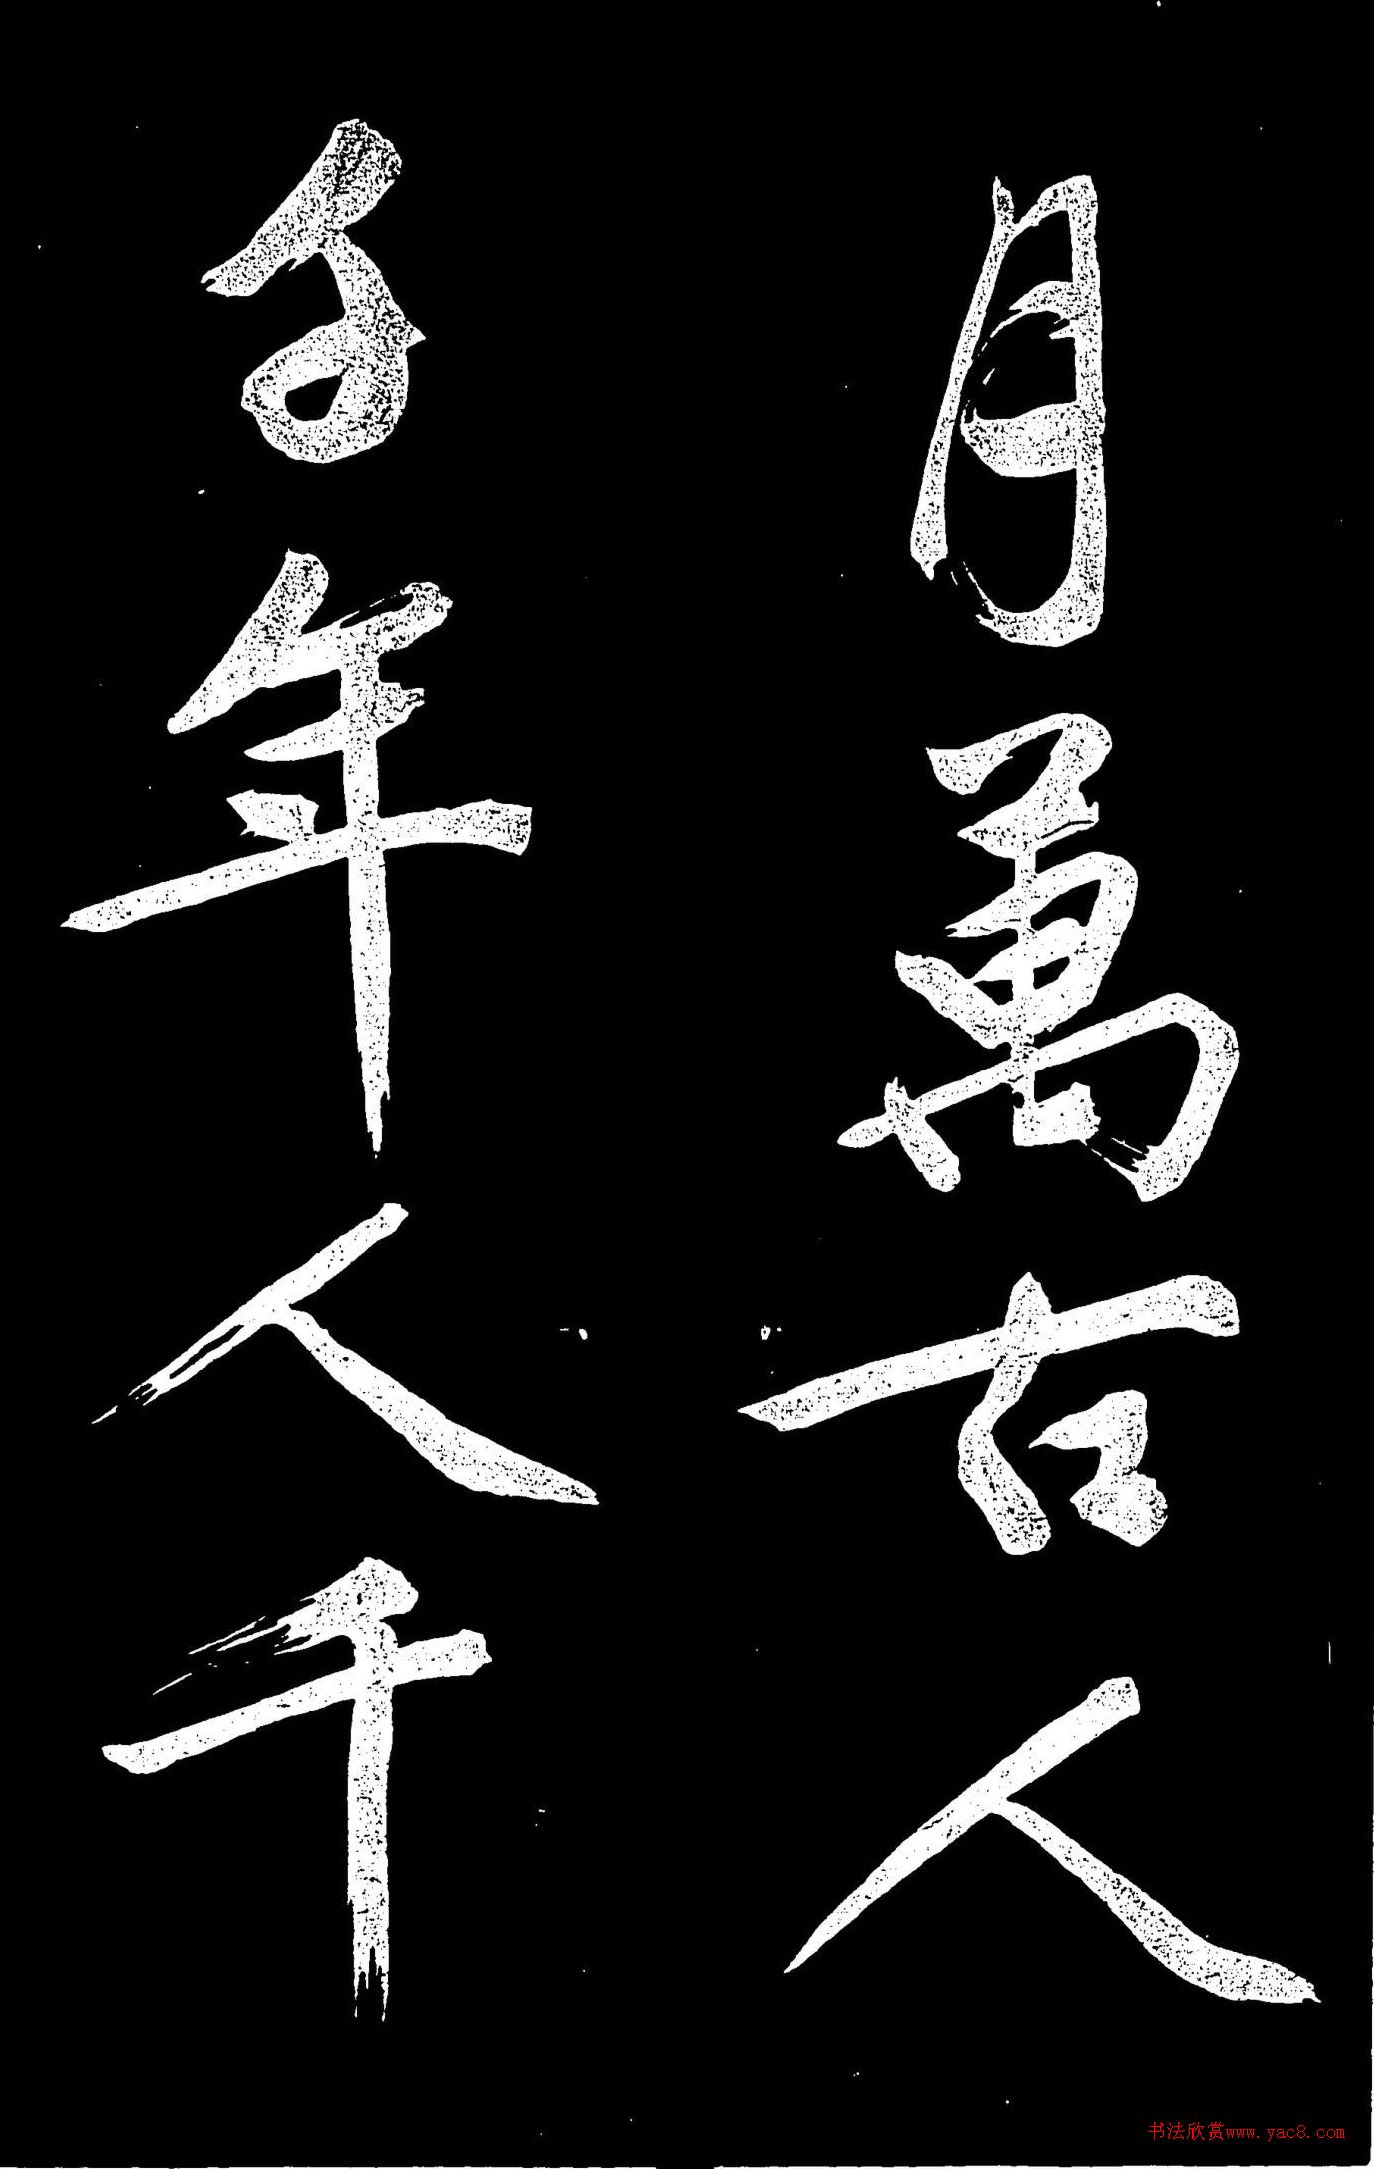 月萬古人
年人千
书法欣赏www.yac8.com